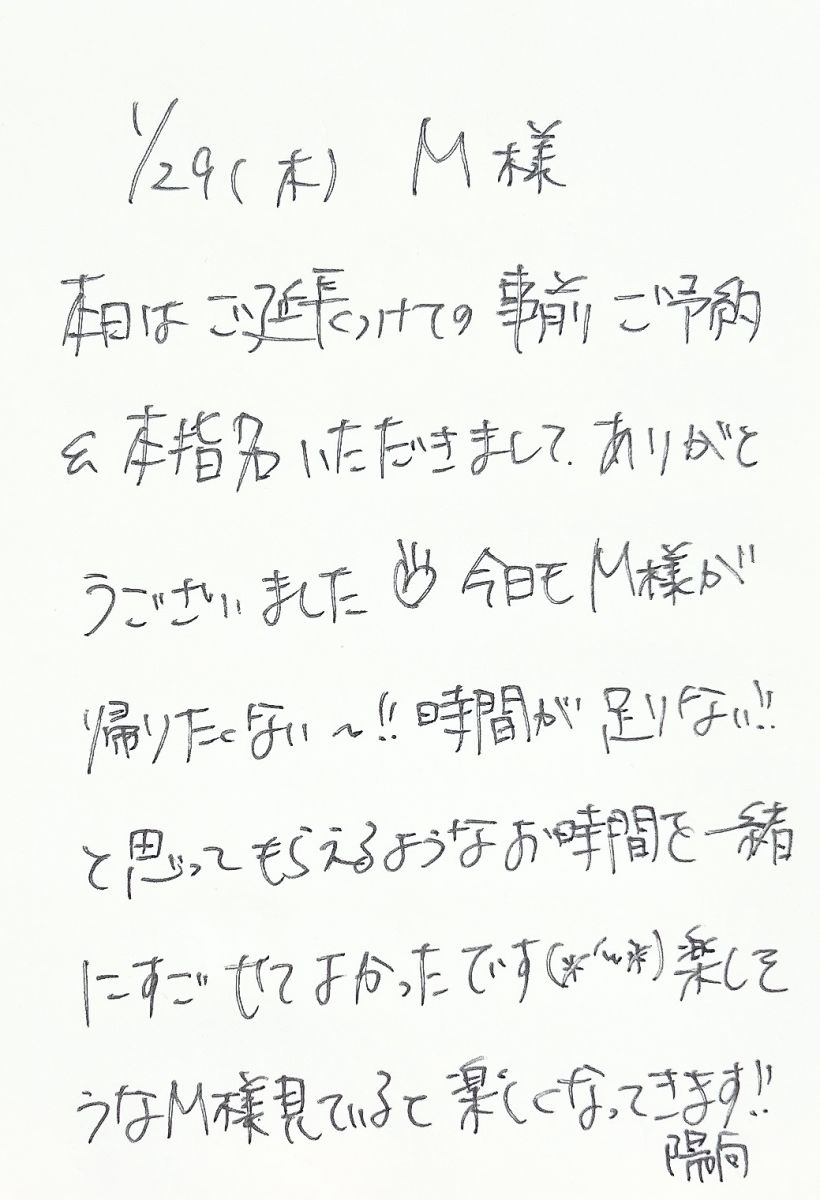 1/29(木) M様
本日はご延長つけての事前ご予約
& 本指名いただきまして、ありがと
うございました 今日も M様が
帰りたくない〜!! 時間が足りない!!
と思ってもらえるようなお時間を一緒
にすごせてよかったです(*´˘`*)楽しそ
うなM様見ていると楽しくなってきます!!
陽向